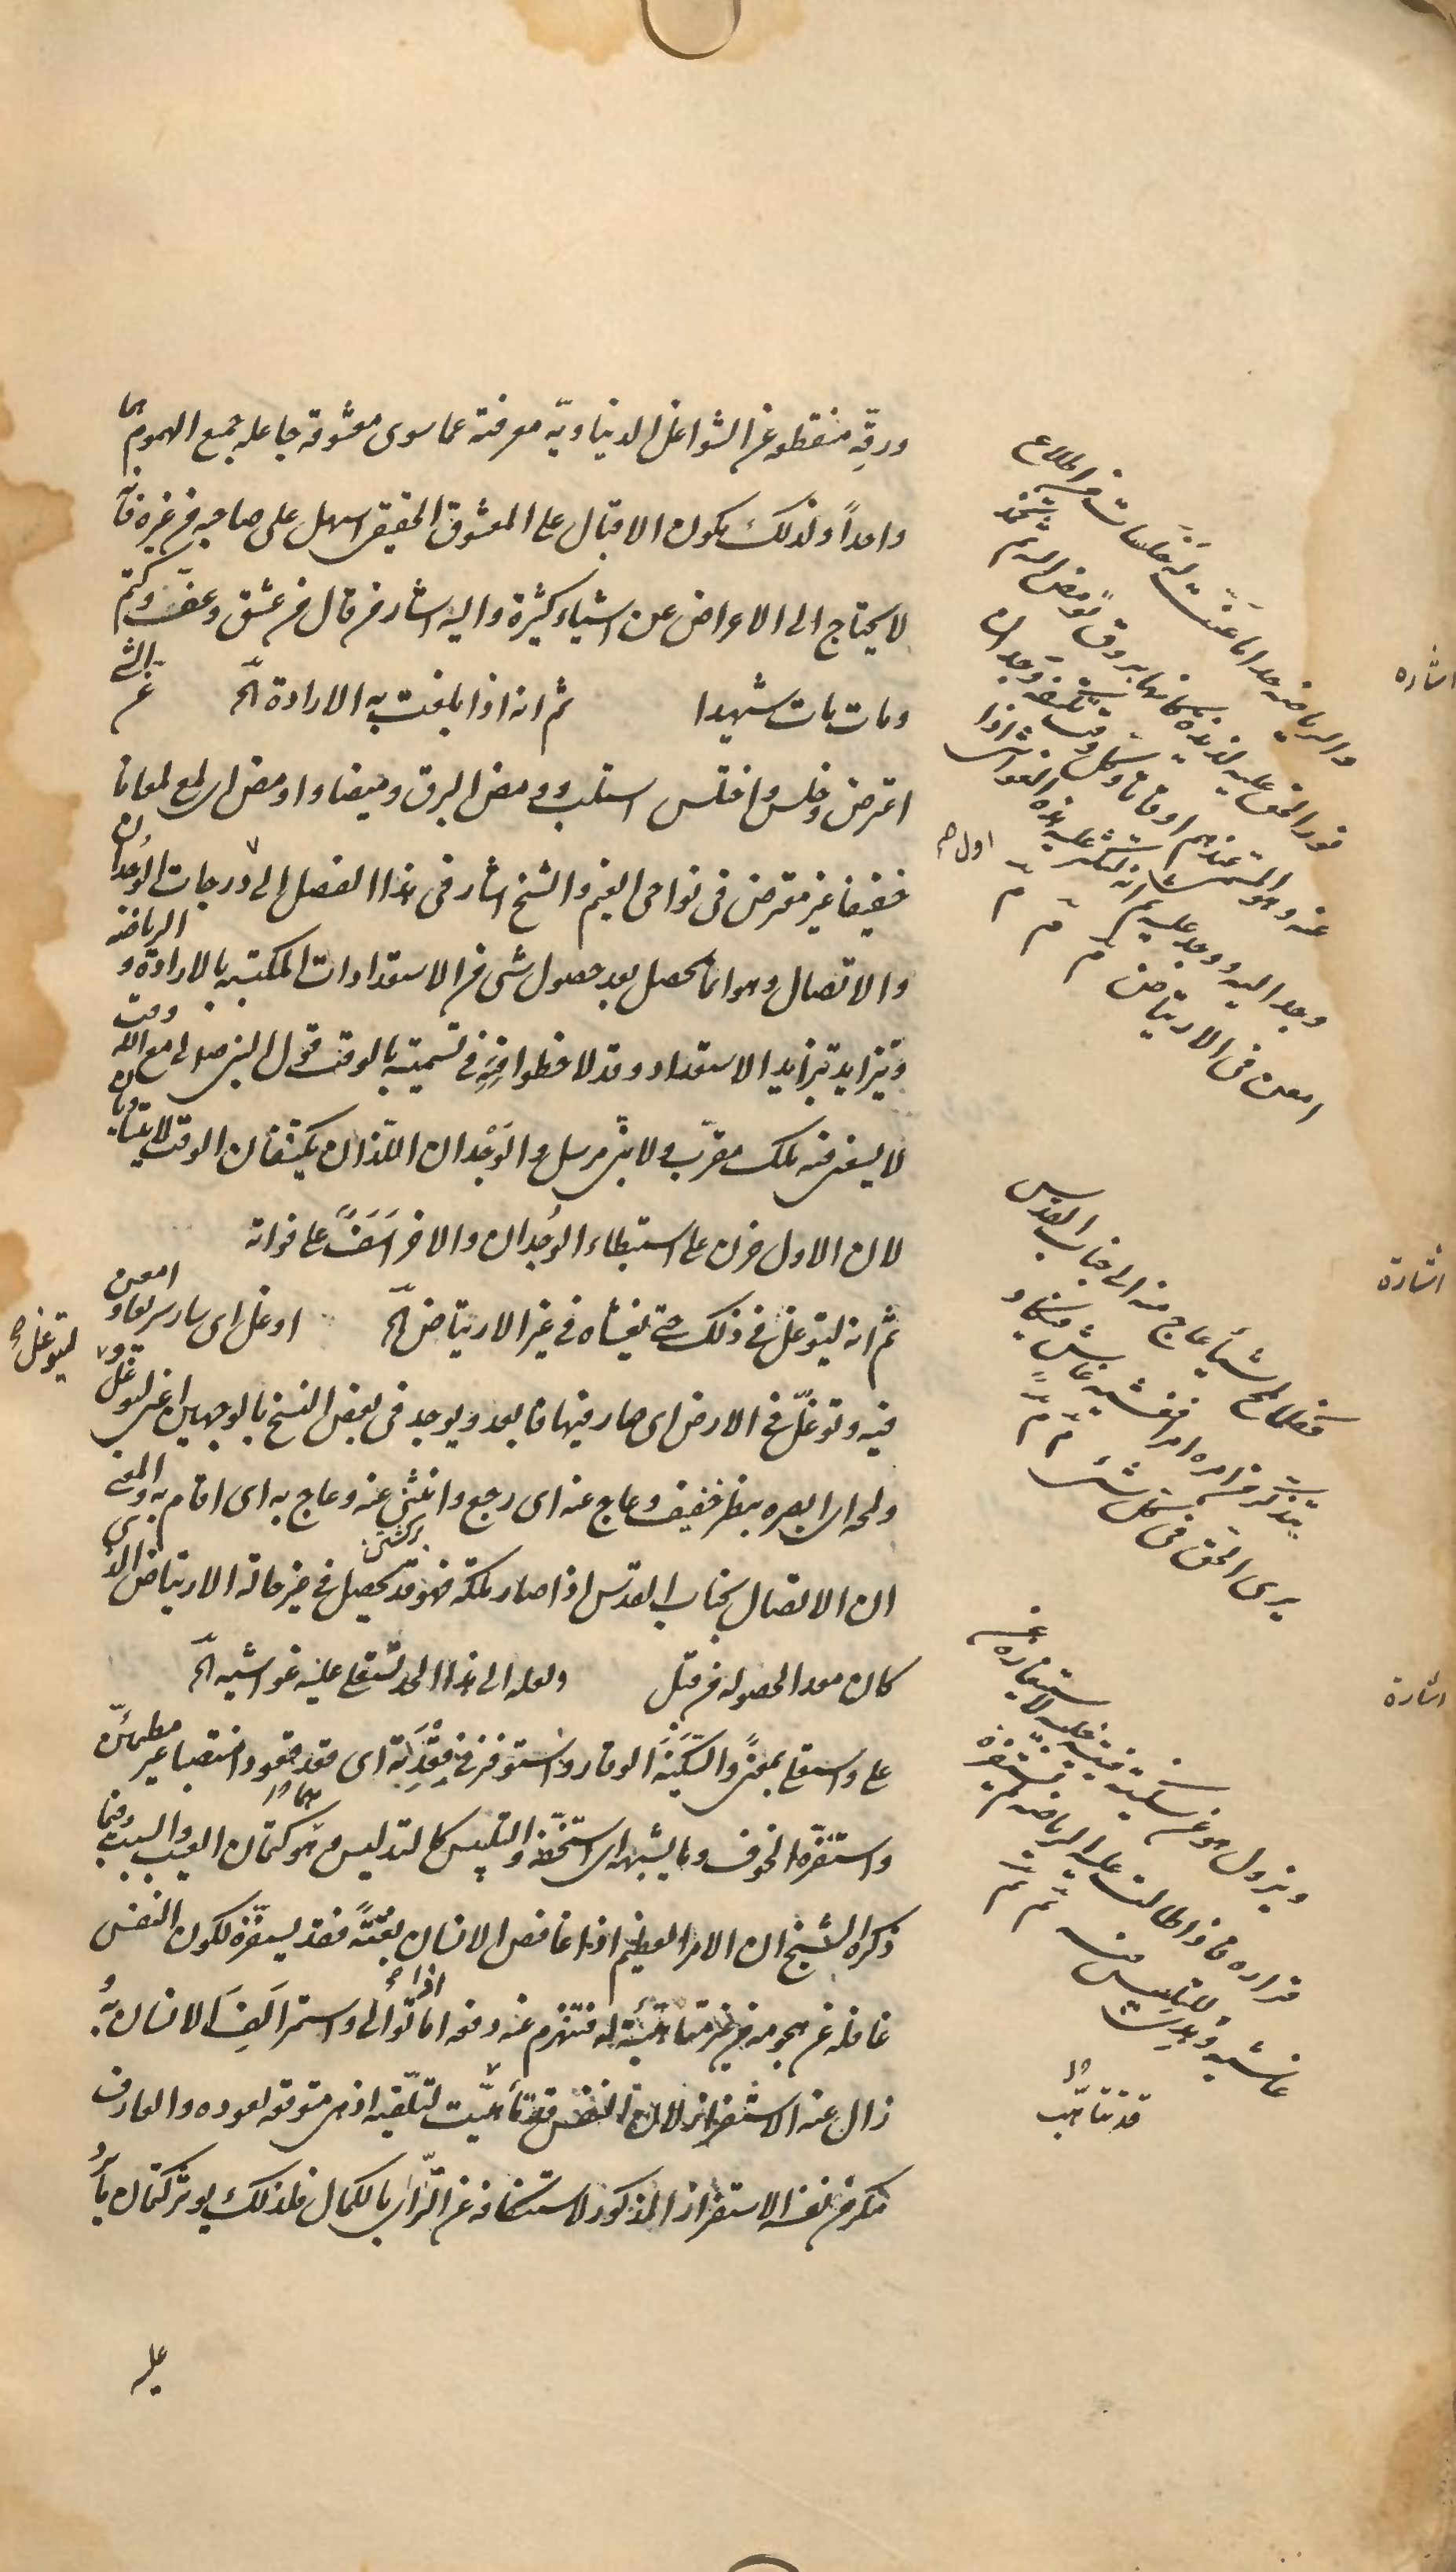 ورقّة منقطعة عن الشواغل الدنياوية معرضة عما سوى معشوقه جاعلة جميع الهموم هما
واحداً ولذلك يكون الاقبال على المعشوق الحقيقى اسهل على صاحبه من غيره فانه
لا يحتاج الى الاعراض عن اشياء كثيرة واليه اشار من قال من عشق وعفّ وكتم
ومات مات شهيدا ثم انه اذا بلغت به الارادة الخ عنّ الشئ
اعترض وخلس واختلس استلب و ومض البرق وميضا واومض اى لمع لمعانا
خفيفا غير معترض فى نواحى الغيم والشيخ اشار فى هذا الفصل الى اول درجات الوُجدان
والاتصال وهو انما يحصل بعد حصول شئ من الاستعدادات المكتسبة بالارادة و الرياضة
وتتزايد بتزايد الاستعداد وقد لاحظوا فى تسميته بالوقت قول النبى صلى لى مع الله وقت
لا يسعنى فيه ملك مقرّب ولا نبى مرسل والوَجْدان اللذان يكتنفان الوقت لا يتساويان
لان الاول حزن على استبطاء الوُجدان والاخر اَسَفٌ على فواته
ثم انه ليتوغل فى ذلك حتى يغشاه فى غير الارتياض الخ اوغل اى سار سريعا و امعن
فيه وتوغّل فى الارض اى صار فيها فابعد ويوجد فى بعض النسخ بالوجهين اعنى ليوغل و
ليتوغل
ولمحه اى ابصره بنظر خفيف وعاج عنه اى رجع وانثنى عنه وعاج به اى اقام به والمعنى
ان الاتصال بجناب القدس اذا صار ملكة فهو قد يحصل فى غير حالة الارتياض الذى
كان معدا لحصوله من قبل ولعله الى هذا الحد تستعلى عليه غواشيه الخ
على واستعلى بمعنىً والسَّكينة الوقار واستوفز فى قِعْدَته اى قعد قعودا منتصبا غير مطمئنّ
واستفزّه الخوف وما يشبهه اى استخفّه والتلبيس كالتدليس وهو كتمان العيب والسبب فيما
ذكره الشيخ ان الامر العظيم اذا غافص الانسان بغتةً فقد يستفزّه لكون النفس
غافلة عن هجومه غير متأهّبة له فتنهزم عنه دفعة اما اذا توالى واستمر اَلِفَ الانسان به
زال عنه الاستفزاز لان النفس قد تأهّبت لتلقّيه اذ هى متوقعه لعوده والعارف
ينكر من نفسه الاستفزاز المذكور لاستنكافه عن التّرائى بالكمال فلذلك يوثر كتمان ما
على
اشاره
والرياضة حدا ما عنّت له خلسات من اطلاع
نور الحق عليه لذيذة كانها بروق تومض اليه ثم تخمد
عنه وهو المسمى عندهم اوقاتا وكل وقت يكتنفه وجدان
وجد اليه ووجد عليه ثم انه لتكثر عليه هذه الغواشى اذا
امعن فى الارتياض
اول
اشارة
فكلما لمح شيئا عاج منه الى جناب القدس
يتذكر من امره امرا فغشيه غاش فيكاد
يرى الحق فى كل شئ
اشارة
ويزول هو عن سكينته فيتنبّه جليسه لاستيفازه عن
قراره فاذا طالت عليه الرياضة لم تستفزه
غاشية وهدى للتلبيس فيه
قد تتأهّب